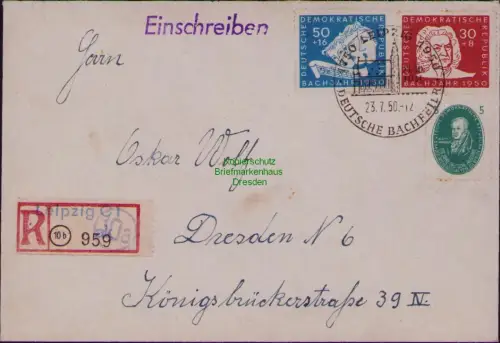 Einschreiben
50
+16
DEUTSCHE
DEMOKRATISCHE
REPUBLIK
BACHJAHR 1950
30
+8
DEUTSCHE
DEMOKRATISCHE
REPUBLIK
BACHJAHR 1950
23.7.50.-12
DEUTSCHE BACHFEIER
5
Herrn
Oskar
Kopierschutz
Briefmarkenhaus
Dresden
Leipzig C1
R
10b
959
Dresden N 6
Königsbrückerstraße 39 IV.